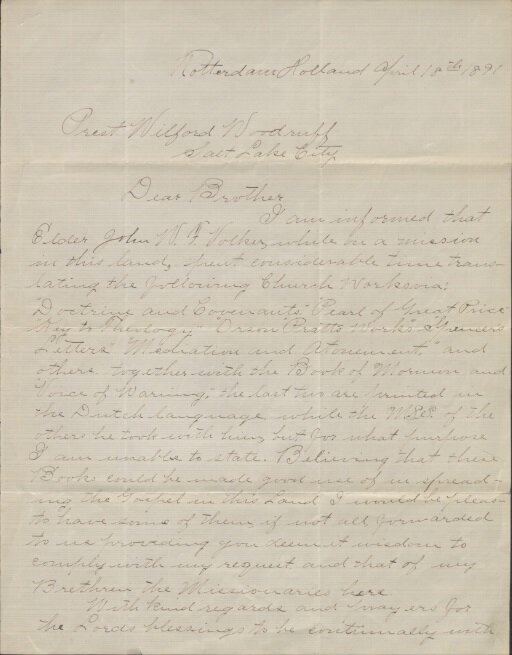 Rotterdam Holland April 18th 1891
Prest Wilford Woodruff
Salt Lake City
Dear Brother
I am informed that
Elder John W. F. Volker, while on a mission
in this land, spent considerable time trans-
lating the following Church Works viz:
"Doctrine and Covenants" "Pearl of Great Price"
"Key to Theology," "Orson Pratts Works" "Spencer's
Letters" "Mediation and Atonement," and
others together with the Book of Mormon and
"Voice of Warning," the last two are printed in
the Dutch language while the MSS. of the
others he took with him, but for what purpose
I am unable to state. Believing that these
Books could be made good use of in spread-
ing the Gospel in this Land I would be pleas-
to have some of them, if not all forwarded
to us providing you deem it wisdom to
comply with my request and that of my
Brethren the Missionaries here
With kind regards and prayers for
the Lords blessings to be continually with